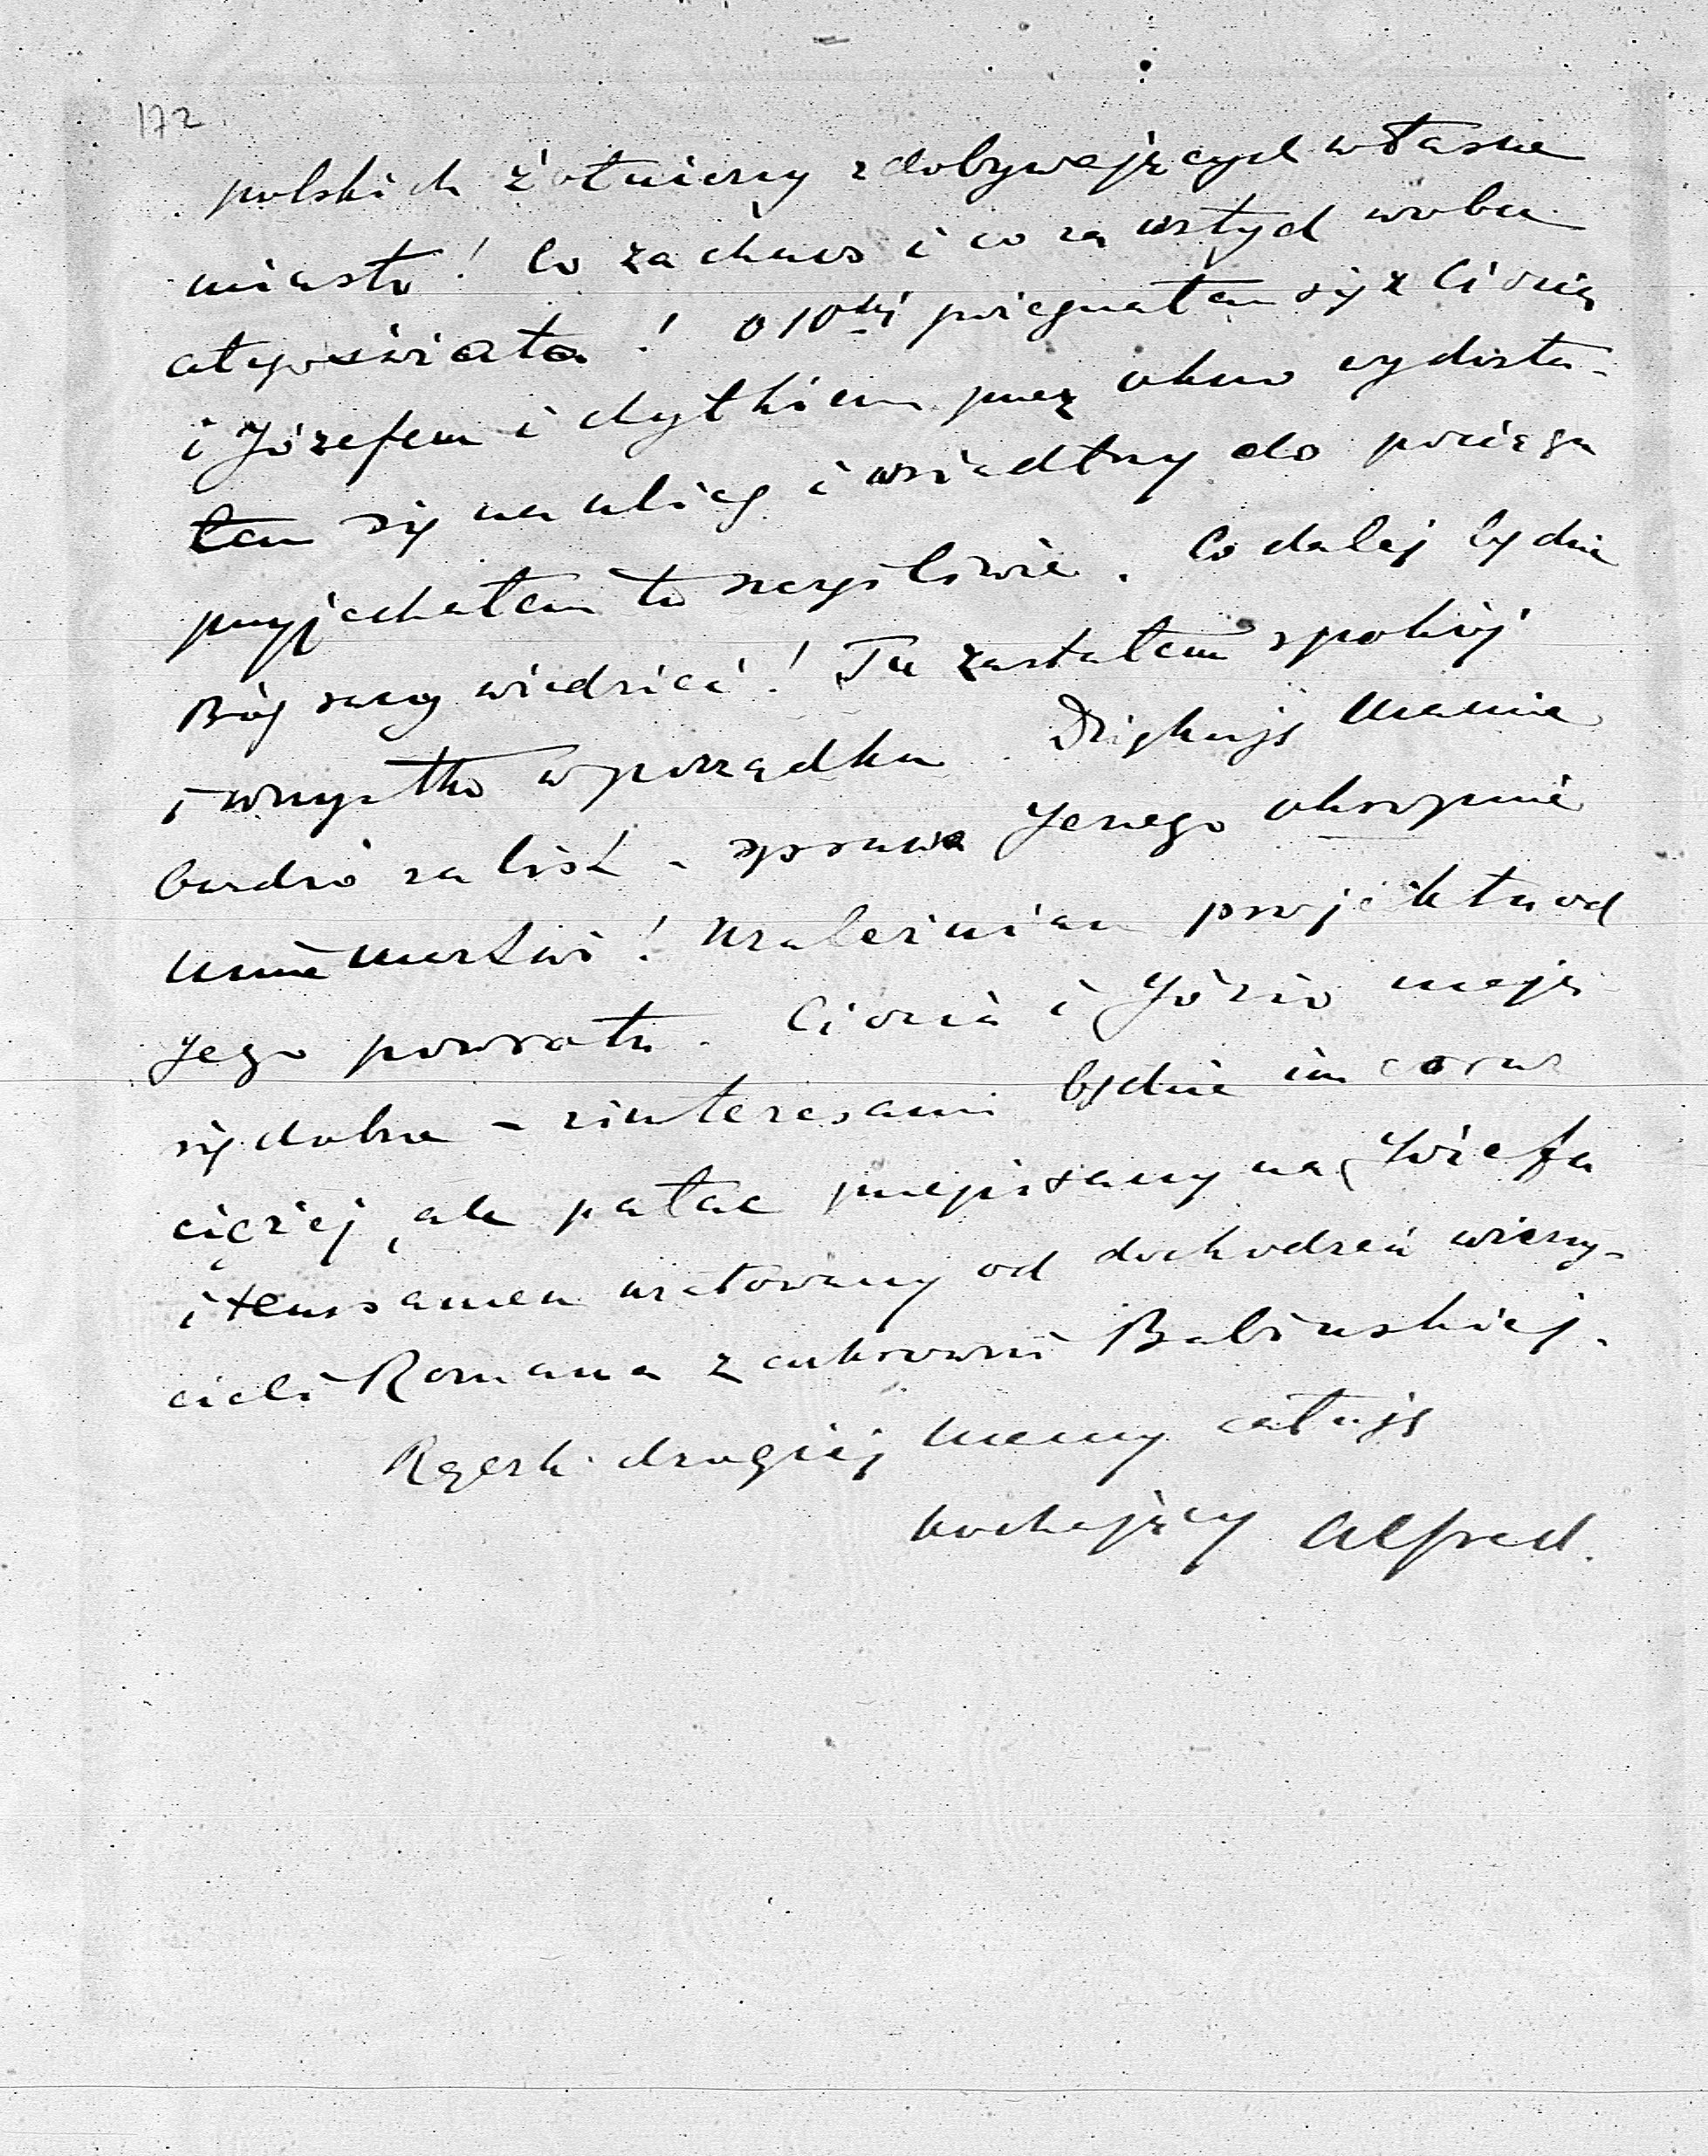 172
polskich żołnierzy zdobywających własne
miasto! Co za chaos i co za wstyd wobec
całego świata! O 10tej pożegnałem się z Ciocią
i Józefem i chyłkiem przez okno wydosta-
łem się na ulicę i wsiadłszy do pociągu
przyjechałem tu szczęśliwie. Co dalej będzie
Bóg raczy wiedzieć! Tu zastałem spokój
i wszystko w porządku. Dziękuję Mamie
bardzo za list - sprawa Jerzego okropnie
mnie martwi! Uzależniam projekta od
Jego powrotu. Ciocia i Józio mają
się dobrze - z interesami będzie im coraz
ciężej, ale pałac przepisany na Józefa
i temsamem uratowany od dochodzeń wierzy-
cieli Romana z cukrowni Babińskiej.
Rączk. drogiej Mamy całuję
kochający Alfred.